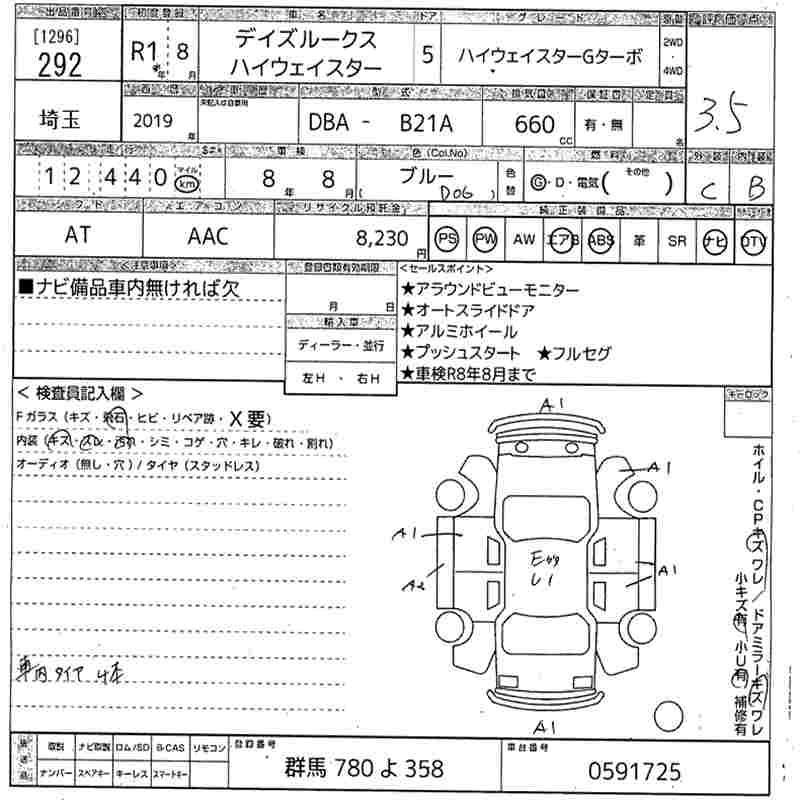 出品番号 初度登録 車名 ドア グレード 駆動 評価点
[1296]
292
R1 年 8 月
デイズルークス
ハイウェイスター
5
ハイウェイスターGターボ
2WD
4WD
3.5
埼玉
2019 年
型式 排気量 保証書 定員
DBA - B21A
660 cc
有・無
名
走行 車検 色 (Col.No) 燃料 外装 内装
12440 マイル km
8 年 8 月
ブルー
( DOG )
色替
G・D・電気( その他 )
C
B
シフト エアコン リサイクル預託金 純正装備品
AT
AAC
8,230 円
PS PW AW エアB ABS 革 SR ナビ DTV
<注意事項> 登録書類有効期限 <セールスポイント>
■ナビ備品車内無ければ欠
月 日
輸入車
ディーラー・並行
左H ・ 右H
★アラウンドビューモニター
★オートスライドドア
★アルミホイール
★プッシュスタート ★フルセグ
★車検R8年8月まで
< 検査員記入欄 >
Fガラス (キズ・飛石・ヒビ・リペア跡・X要)
内装 (キズ・スレ・汚れ・シミ・コゲ・穴・キレ・破れ・割れ)
オーディオ (無し・穴) / タイヤ (スタッドレス)
キーロック
A1
A1
A1
A2
U1
A1
A1
ホイル・CPキズワレ/ドアミラーキズワレ
小キズ有 小U有 補修有
車内タイヤ4本
取説 ナビ取説 ロム/SD B-CAS リモコン
ナンバー スペアキー キーレス スマートキー
登録番号
群馬 780 よ 358
車台番号
0591725